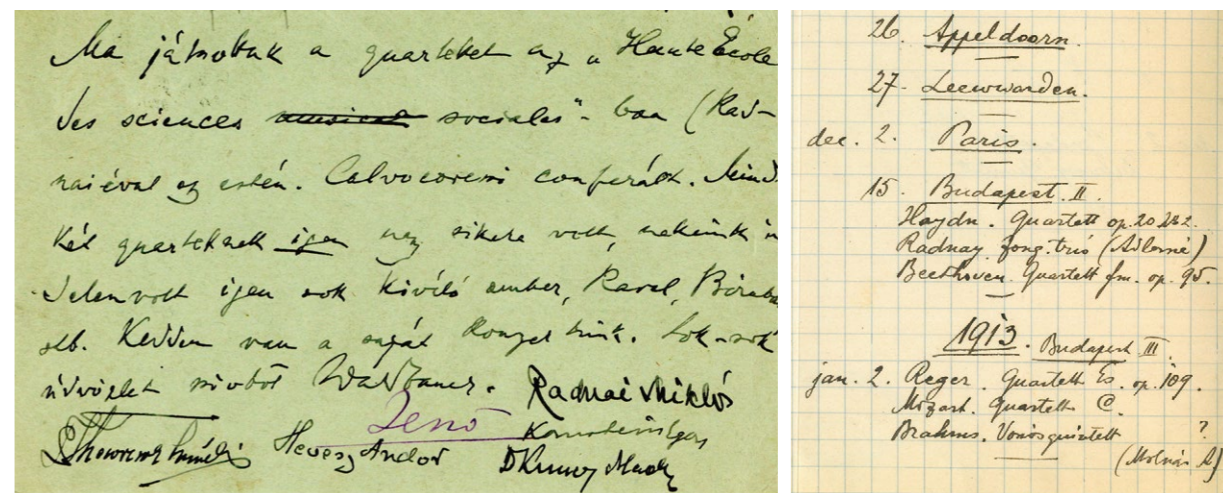 Ma játszottuk a quartetet az „Haute École
des sciences musical sociales"-ban (Rad-
naiéval egy estén. Calvocoressi conferált. Mind
két quartetnek igen nagy sikere volt, nekünk is
Jelen volt igen sok kiváló ember, Ravel,
stb. Kedden van a saját Sok-sok
üdvözlet Waldbauer. Radnai Miklós
Jenő
Hevesy Andor
26. Appeldoorn.
27. Leeuwarden.
dec. 2. Paris.
15. Budapest. II.
Haydn. Quartett op. 20 №2.
Radnay. zong. trió (Adlerné)
Beethoven. Quartett fm. op. 95.
1913. Budapest III.
jan. 2. Reger. Quartett Es. op. 109.
Mozart. Quartett C.
Brahms. Vonósquintett ?
(Molnár A)